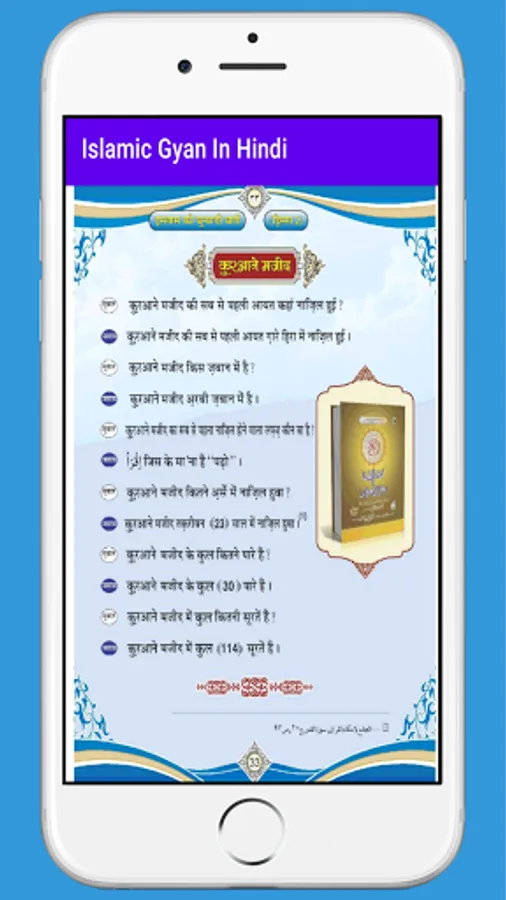 Islamic Gyan In Hindi
क़ुरआने मजीद
क़ुरआने मजीद की सब से पहली आयत कहां नाज़िल हुई ?
क़ुरआने मजीद की सब से पहली आयत ग़ारे हिरा में नाज़िल हुई ।
क़ुरआने मजीद किस ज़बान में है ?
क़ुरआने मजीद अ़रबी ज़बान में है ।
क़ुरआने मजीद का सब से पहला नाज़िल होने वाला लफ़्ज़ कौन सा है ?
اِقْرَاْ जिस के मा'ना हैं "पढ़ो" ।
क़ुरआने मजीद कितने अ़र्से में नाज़िल हुवा ?
क़ुरआने मजीद तक़रीबन (23) साल में नाज़िल हुवा ।
क़ुरआने मजीद के कुल कितने पारे हैं ?
क़ुरआने मजीद के कुल (30) पारे हैं ।
क़ुरआने मजीद में कुल कितनी सूरतें हैं ?
क़ुरआने मजीद में कुल (114) सूरतें हैं ।
33